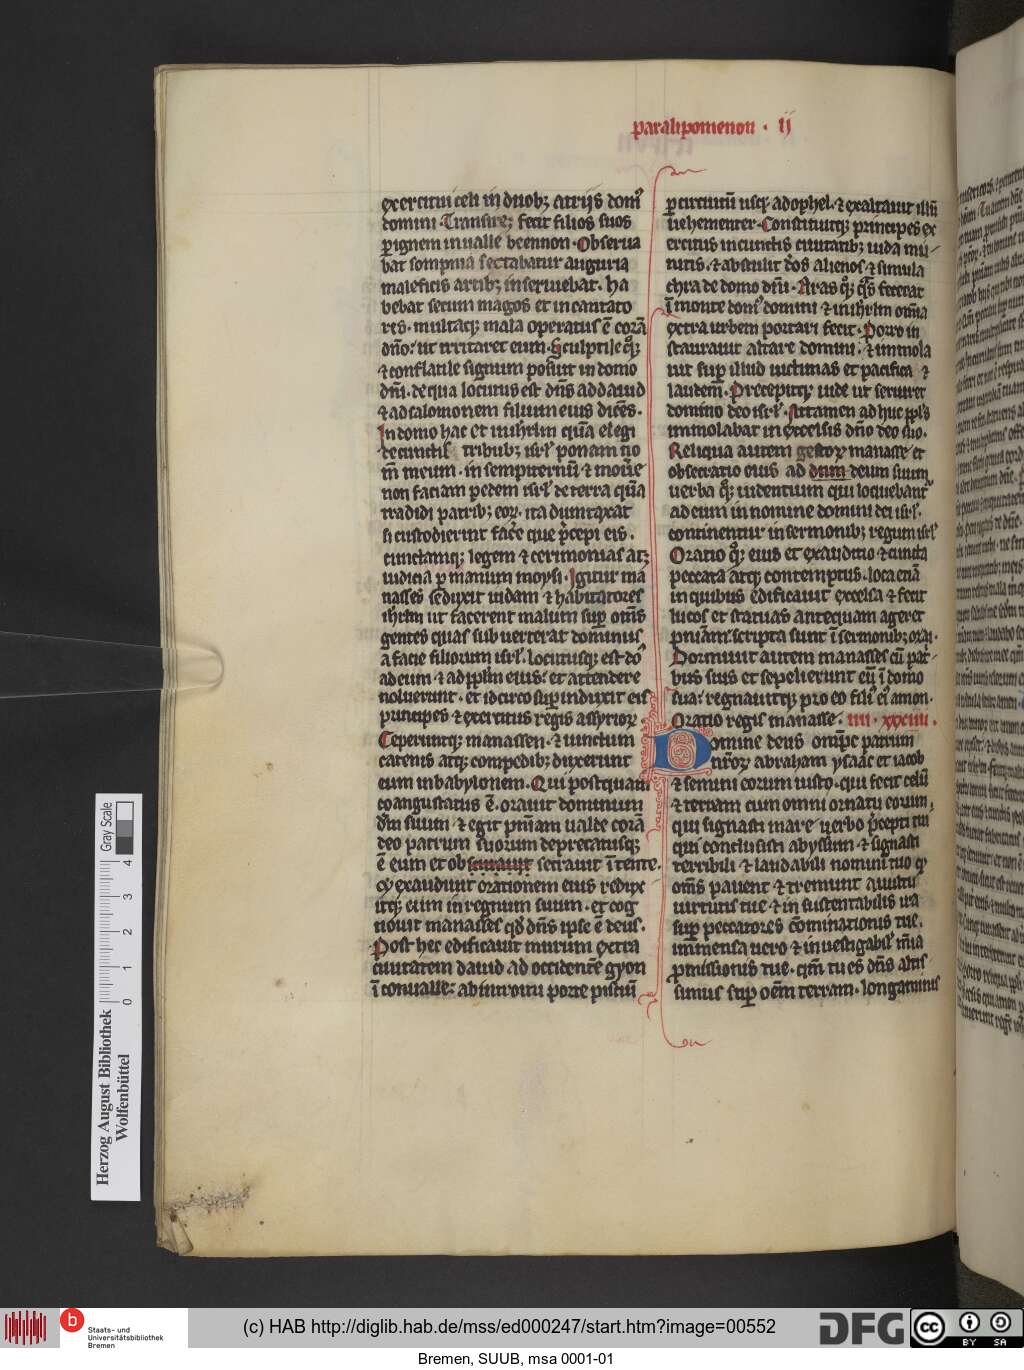 paralipomenon · ij
exercitui celi in duobꝫ atrijs domꝰ
domini · Transireqꝫ fecit filios suos
ꝑ ignem in ualle beennon · Obserua
bat sompnia sectabatur auguria
maleficis artibꝫ inseruiebat · ha
bebat secum magos et incantato
res · multaqꝫ mala operatus ē corā
dño · ut irritaret eum · Sculptile qꝫ
⁊ conflatile signum posuit in domo
dñi · de qua locutus est dñs ad dauid
⁊ ad salomonem filium eius dicēs ·
In domo hac et in ihrlm quā elegi
de cunctis tribubꝫ isrl ponam no
m̄ meum · in sempiternū ⁊ mouēe
non faciam pedem isrl de terra quā
tradidi patribꝫ eoꝝ · ita dumtaxat
si custodierint facē que p̄cepi eis ·
cunctamqꝫ legem ⁊ cerimonias atqꝫ
iudicia ꝑ manum moysi · Igitur ma
nasses seduxit iudam ⁊ habitatores
ihrlm ut facerent malum suꝑ om̄s
gentes quas subuerterat dominus
a facie filiorum isrl · Locutusqꝫ est dn̄s
ad eum ⁊ ad pplm eius · et attendere
noluerunt · et idcirco suꝑinduxit eis
principes ⁊ exercitus regis assyrioꝝ
Ceperuntqꝫ manassen · ⁊ uinctum
catenis atqꝫ compedibꝫ duxerunt
eum in babylonem · Qui postquam
coangustatus ē · orauit dominum
dm̄ suum · ⁊ egit pn̄iam ualde corā
deo patrum suorum deprecatusqꝫ
ē eum et obseruauit secrauit ītente ·
⁊ exaudiuit orationem eius reduxe
itqꝫ eum in regnum suum · et cog
nouit manasses qd̓ dñs ipse ē deus ·
Post hec edificauit murum extra
ciuitatem dauid ad occidentē gyon
ī conualle · ab introitu porte pisciū
ꝑ circuitū usqꝫ ad ophel · ⁊ exaltauit illū
uehementer · Constituitqꝫ principes ex
ercitus in cunctis ciuitatibꝫ iuda mu
nitis · ⁊ abstulit dōs alienos ⁊ simula
chra de domo dñi · Aras qꝫ qᷓs fecerat
ī monte domꝰ domini ⁊ in ihrlm om̄ia
extra urbem portari fecit · Porro in
staurauit altare domini · ⁊ immola
uit suꝑ illud uictimas et pacifica ⁊
laudem · Precepitqꝫ iude ut seruiret
domino deo isrl · Attamen adhuc ppls
immolabat in excelsis dño deo suo ·
Reliqua autem gestoꝝ manasse et
obsecratio eius ad dnm deum suum
uerba qꝫ uidentium qui loquebantᷣ
ad eum in nomine domini dei isrl ·
continentur in sermonibꝫ regum isrl
Oratio qꝫ eius et exauditio ⁊ cuncta
peccata atqꝫ contemptus · loca etiā
in quibus edificauit excelsa ⁊ fecit
lucos et statuas antequam ageret
pn̄iam scripta sunt ī sermonibꝫ ozai ·
Dormiuit autem manasses cū pat
bus suis et sepelierunt eū ī domo
sua · regnauitqꝫ pro eo filiꝰ eiꝰ amon ·
Oratio regis manasse · iiii · xxxiiii ·
Domine deus omp̄c patrum
nr̄oꝝ abraham ysaac et iacob
⁊ semini eorum iusto · qui fecit celū
⁊ terram cum omni ornatu eorum ·
qui signasti mare uerbo p̄cepti tui
qui conclusisti abyssum · ⁊ signasti
terribili ⁊ laudabili nomini tuo qᷓ
om̄s pauent ⁊ tremunt a uultu
uirtutis tue ⁊ in sustentabilis ira
suꝑ peccatores cōminationis tue ·
immensa uero ⁊ inuestigabilꝭ mīa
ꝓmissionis tue · qm̄ tu es dñs altis
simus suꝑ oēm terram · longanimis
Gray Scale
4
3
2
1
0
Herzog August Bibliothek
Wolfenbüttel
b
Staats- und
Universitätsbibliothek
Bremen
(c) HAB http://diglib.hab.de/mss/ed000247/start.htm?image=00552
DFG
cc
BY SA
Bremen, SUUB, msa 0001-01